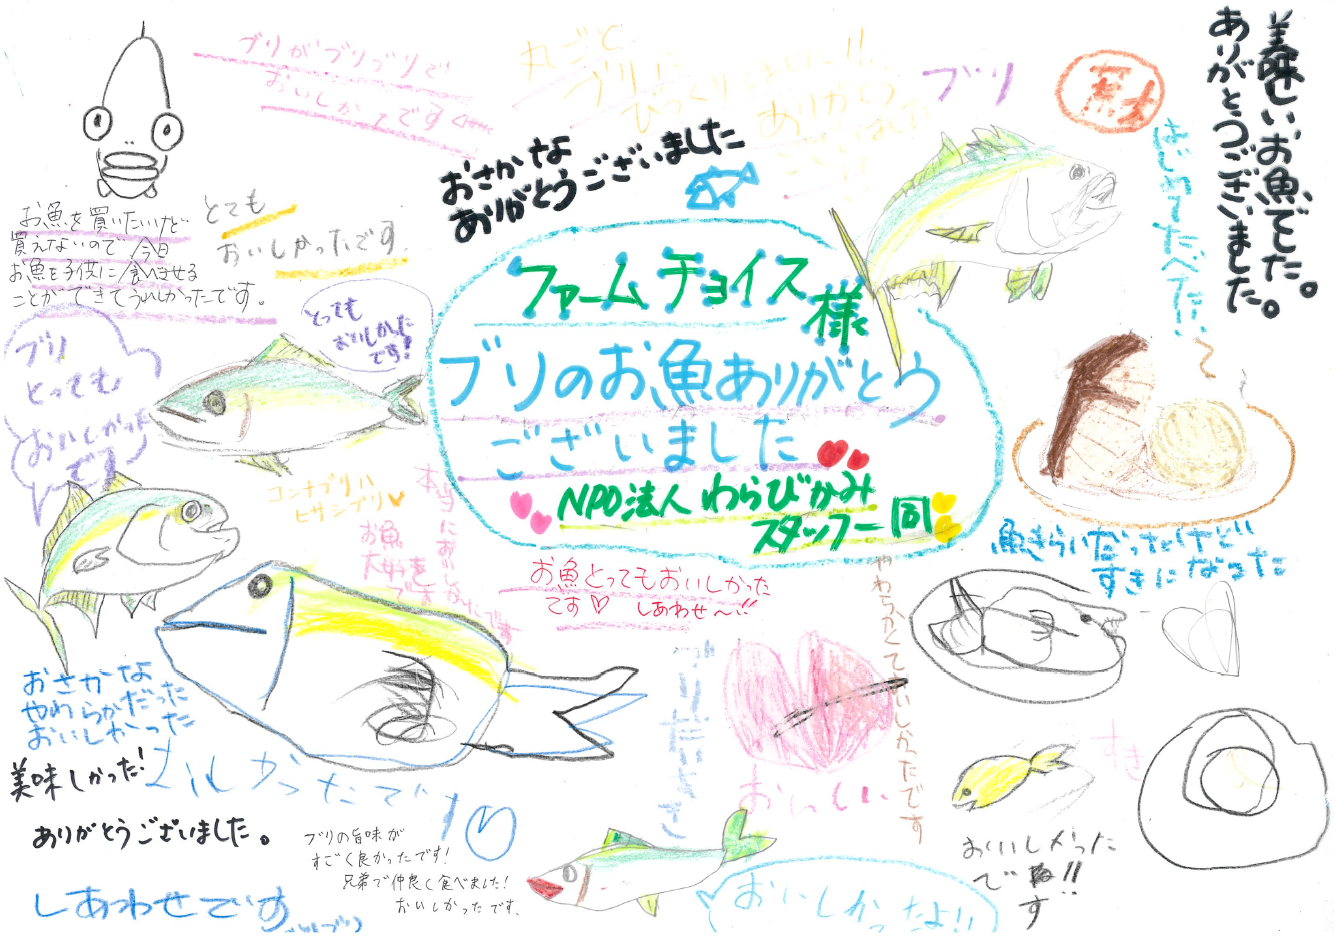 ブリがブリブリで
おいしかったです
丸ごと
ブリに
びっくり
ありがとう
ブリ
魚
美味しいお魚でした。
ありがとうございました。
はじめてたべた
おさかな
ありがとうございました
お魚を買いたいけど
買えないので 今日
お魚を子供に食べさせる
ことができてうれしかったです。
とても
おいしかったです。
とっても
おいしかった
です!
ブリ
とっても
おいしかった
です
ファームチョイス様
ブリのお魚ありがとう
ございました
NPO法人 わらびかみ
スタッフ一同
コンナブリハ
ヒサシブリ
お魚
大好き
です
本当においしかったです
お魚とってもおいしかった
です♡ しあわせ〜!!
魚きらいだったけど
すきになった
やわらかくておいしかったです
おさかな
やわらかだった
おいしかった
美味しかった!
おいしかったです
ありがとうございました。
ブリの旨味が
すごく良かったです!
兄弟で仲良く食べました!
おいしかったです。
しあわせです
おいしい
すき
おいしかった
で
す
!!
おいしかったよ!!